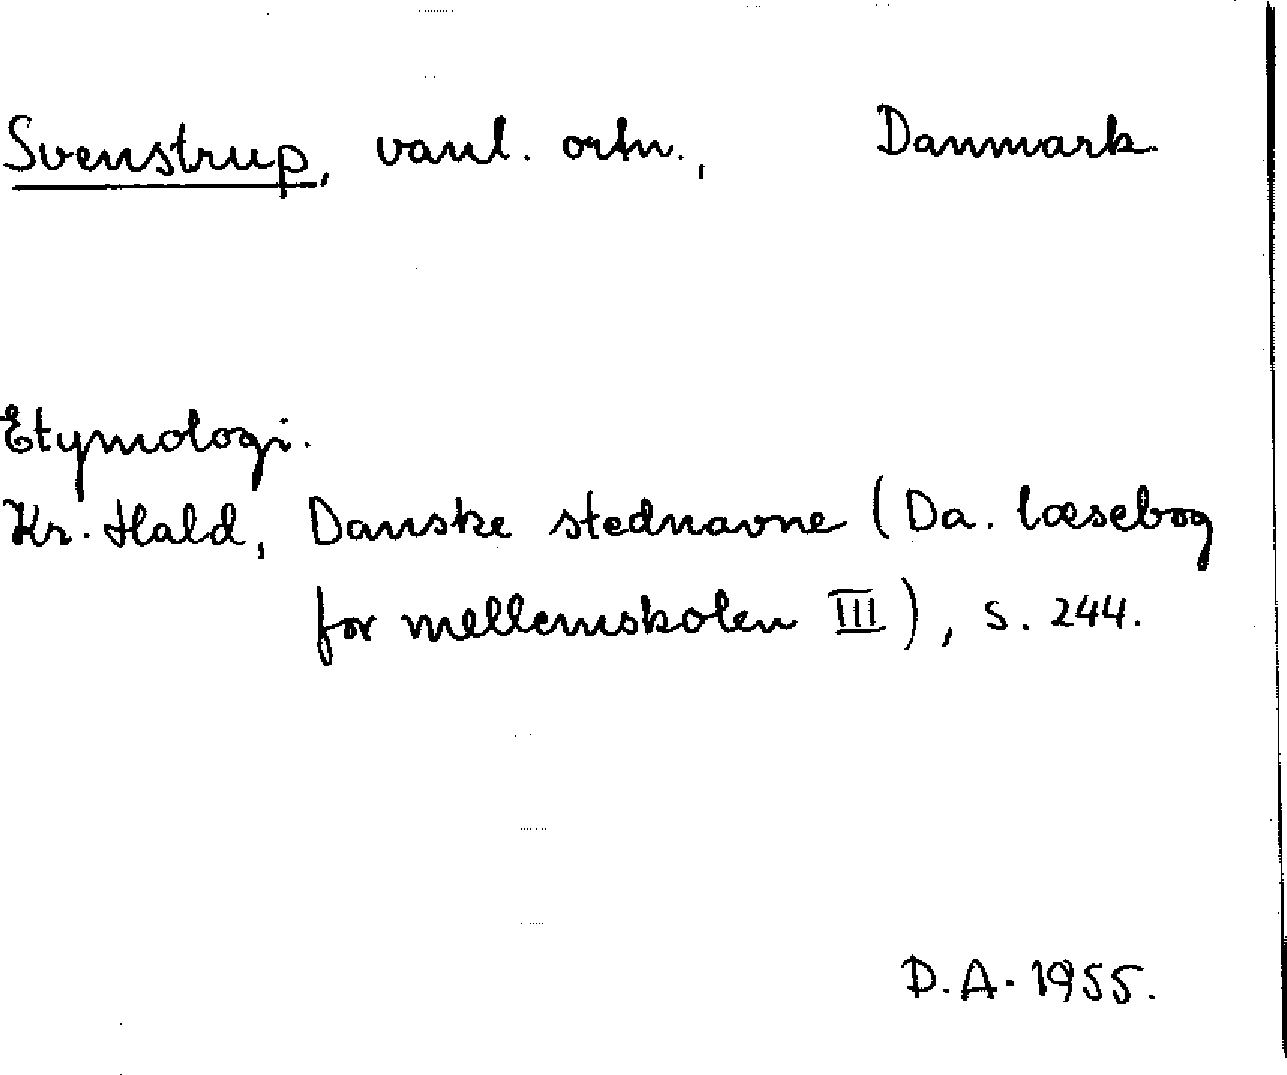 Svenstrup, vanl. ortn., Danmark.
Etymologi.
Kr. Hald, Danske stednavne (Da. læsebog
for mellemskolen III), s. 244.
D.A. 1955.